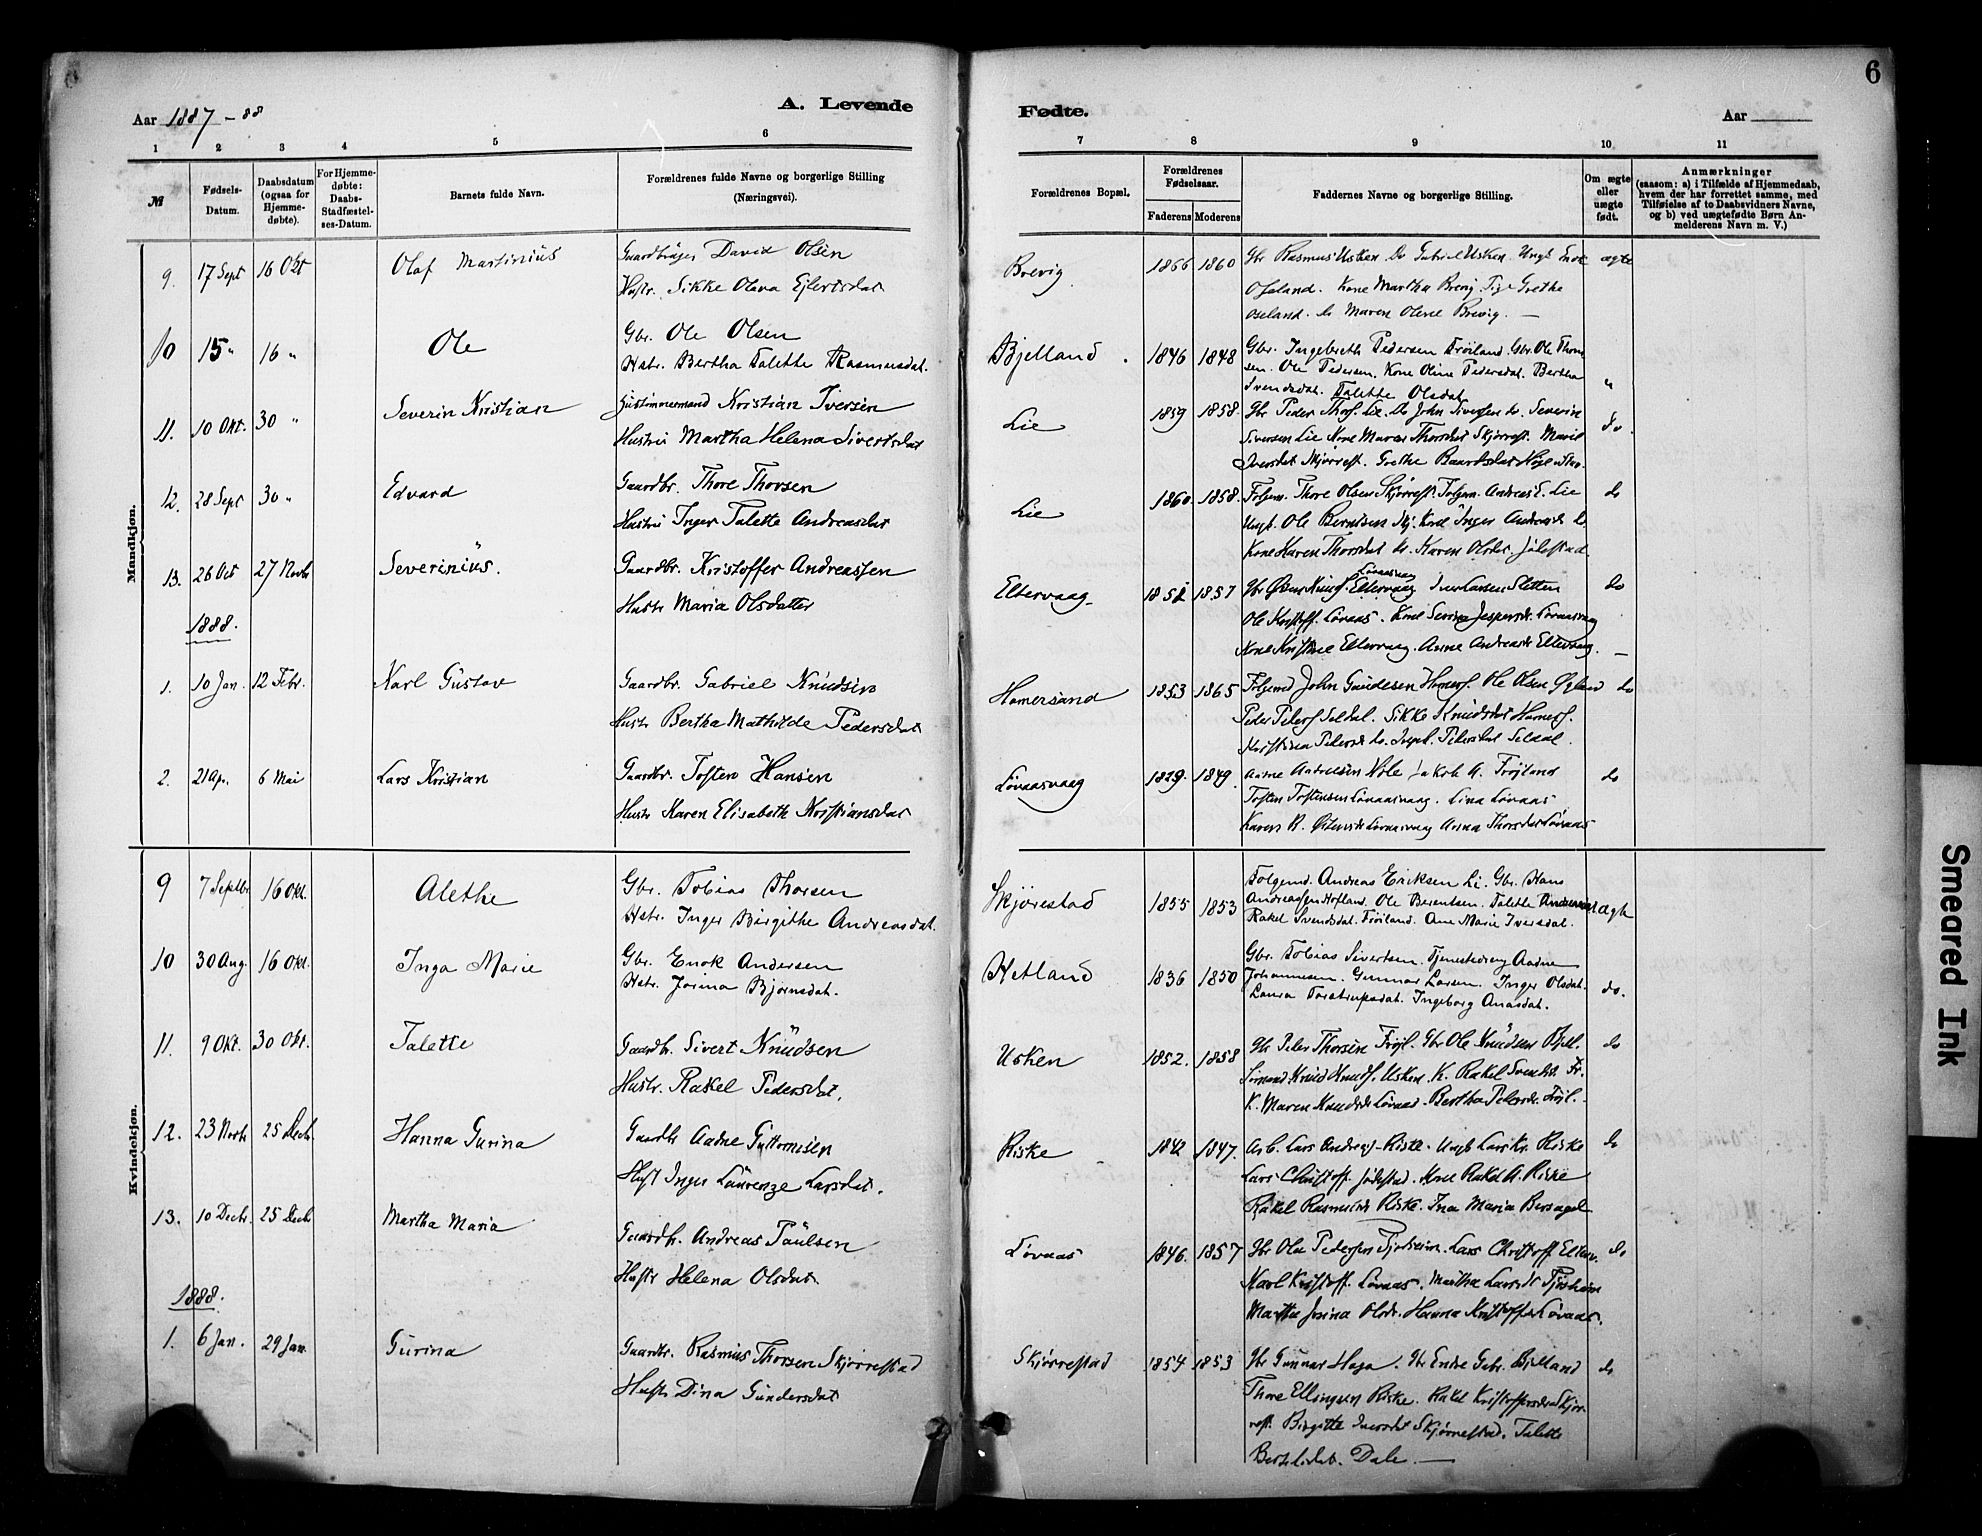 6
Aar 1887-88
A. Levende
Fødte.
Aar
1 2 3 4 5 6 7 8 9 10 11
№
Fødsels-Datum.
Daabsdatum (ogsaa for Hjemmedøbte).
For Hjemmedøbte: Daabs-Stadfæstelses-Datum.
Barnets fulde Navn.
Forældrenes fulde Navne og borgerlige Stilling (Næringsvei).
Forældrenes Bopæl.
Forældrenes Fødselsaar.
Faderens Moderens
Faddernes Navne og borgerlige Stilling.
Om ægte eller uægte født.
Anmærkninger
(saasom: a) i Tilfælde af Hjemmedaab, hvem der har forrettet samme, med Tilføielse af to Daabsvidners Navne, og b) ved uægtefødte Børn Anmelderens Navn m. V.)
Mandkjøn.
9. 17 Sept 16 Okt Olaf Martinius David Olsen Brevig 1866 1860 Gbr Rasmus Usken. Do Gabriel Usken. ægte
Hustr. Sikke Olava Ejlertsdat Kone Martha Brevig. Grethe
Do Maren Oline Brevig.
10 15 " 16 " Ole Gbr. Ole Olsen Bjelland. 1846 1848 Gbr. Ingebreth Pedersen Frøiland. Gbr. Ole Thom
Hstr. Bertha Talette Rasmusdat. sen. Ole Pedersen. Kone Oline Pedersdat. Bertha "
Svendsdat. Talette Olsdat
11. 10 Okt. 30 " Severin Kristian Hustimmermand Kristian Iversen Lie 1859 1858. Gbr Peder Thors. Lie. Do John Sivertsen do. Severin do.
Hustru Martha Helena Sivertsdat Siversen Lie Kone Maren Thorsdat Skjørrest. Marie
Iversdat Skjørrest. Grethe Baardsdat
12. 28 Sept 30 " Edvard Gaardbr. Thore Thorsen Lie 1860. 1858. Folgem. Thore Olsen Skjørrest. Folgem. Andreas E. Lie do
Hustru Inger Talette Andreasdat Ungk. Ole Berntsen Skj. Kone Inger Andreasd do.
Kone Karen Thorsdat do. Karen Olsdr. Jølestad
13. 26 Oct 27 Novbr Severinius. Gaardbr. Kristoffer Andreassen Eltervaag 1851 1857 Eltervaag Løvaasvaag Iver Larsen Sletten do
Hustr Maria Olsdatter Ole Kristoff. Løvaas. Kone Serina Jespersdt. Løvaasvaag
Kone Kristine Eltervaag. Anne Andreasdt Eltervaag.
1888.
1. 10 Jan. 12 Febr. Karl Gustav Gaardbr. Gabriel Knudsen Homersand 1853 1865 Folgemd John Gaudesen Homers. Ole Olsen do
Hustr Bertha Mathilde Pedersdat Peder Peders Seldal. Sikke Knudsdat Homers.
Kristina Pedersdt do. Pedersdat Seldal.
2. 21 Ap. 6 Mai Lars Kristian Gaardbr. Tosten Hansen Løvaasvaag 1849. Aadne Andresen Hole Jakob A. Frøjland do
Hustr Karen Elisabeth Kristiansdat Tosten Tostensen Løvaasvaag. Lina Løvaas
Karen R. Østensdt Løvaasvaag Anna Thorsdat Løvaas
Kvindekjøn.
9 7 Septbr 16 Okt. Alethe Gbr. Tobias Thorsen Skjørestad 1855 1853 Folgemd. Andreas Eriksen Li. Gbr. Hans
Hstr. Inger Birgithe Andreasdat. Andreassen Hofland. Ole Berentsen. Talette Andreasdat ægte
Rakel Svendsdat. Frøiland. Ane Marie Iversdat.
10 30 Aug. 16 Okt. Inga Marie Gbr. Enok Andersen Hetland 1836 1850 Gbr. Tobias Sivertsen. Tjenestedreng Aadne
Hstr. Jorina Bjørnsdat. Johannesen. Gunnar Larsen. Inger Olsdat. do.
Laura Torstensdat. Ingeborg Anasdat.
11. 9 Okt. 30 Okt. Talette Gaardbr. Sivert Knudsen Usken 1852. 1858 Gbr Peder Thorsen Frøjl. Gbr Ole Knudsen Bjell. do
Hustr. Rakel Pedersdat. Knud Knuds. Usken. K. Rakel Svendsdt. Fr.
K. Maren Knudsdt Løvaas. Bertha Pedersdt. Frøjl.
12. 23 Novbr 25 Decbr. Hanna Gurina Gaardbr Aadne Guttormsen Riske 1842 1847. Lars Andreas. Riske. Ungk Lars Kr. Riske do
Hust Inger Laurenze Larsdat. Lars Christoff. Jødestad. Kone Rakel A. Riske
Rakel Rasmusdt Riske. Ina Maria Bersagel
13. 10 Decbr. 25 Decbr Martha Maria Gaardbr. Andreas Paulsen Løvaas 1846. 1857 Gbr Ole Pedersen Tjosheim. Lars Christoff Elterv. do
Hustr Helena Olsdat. Karl Kristoff. Løvaas. Martha Larsdt Tjosheim
Martha Josina Olsdr. Hanna Kristoffdt Løvaas.
1888.
1. 6 Jan. 29 Jan. Gurina Gaardbr. Rasmus Thorsen Skjørrestad Skjørrestad 1854 1853 Gbr Gunnar Haga. Gbr Endre Gabr. Bjelland do
Hustr Dina Gundersdat Thore Ellingsen Riske. Rakel Kristoffersdr Skjør-
rest. Birgitte Iversdat Skjørrestad. Talette
Dale.
Smeared Ink